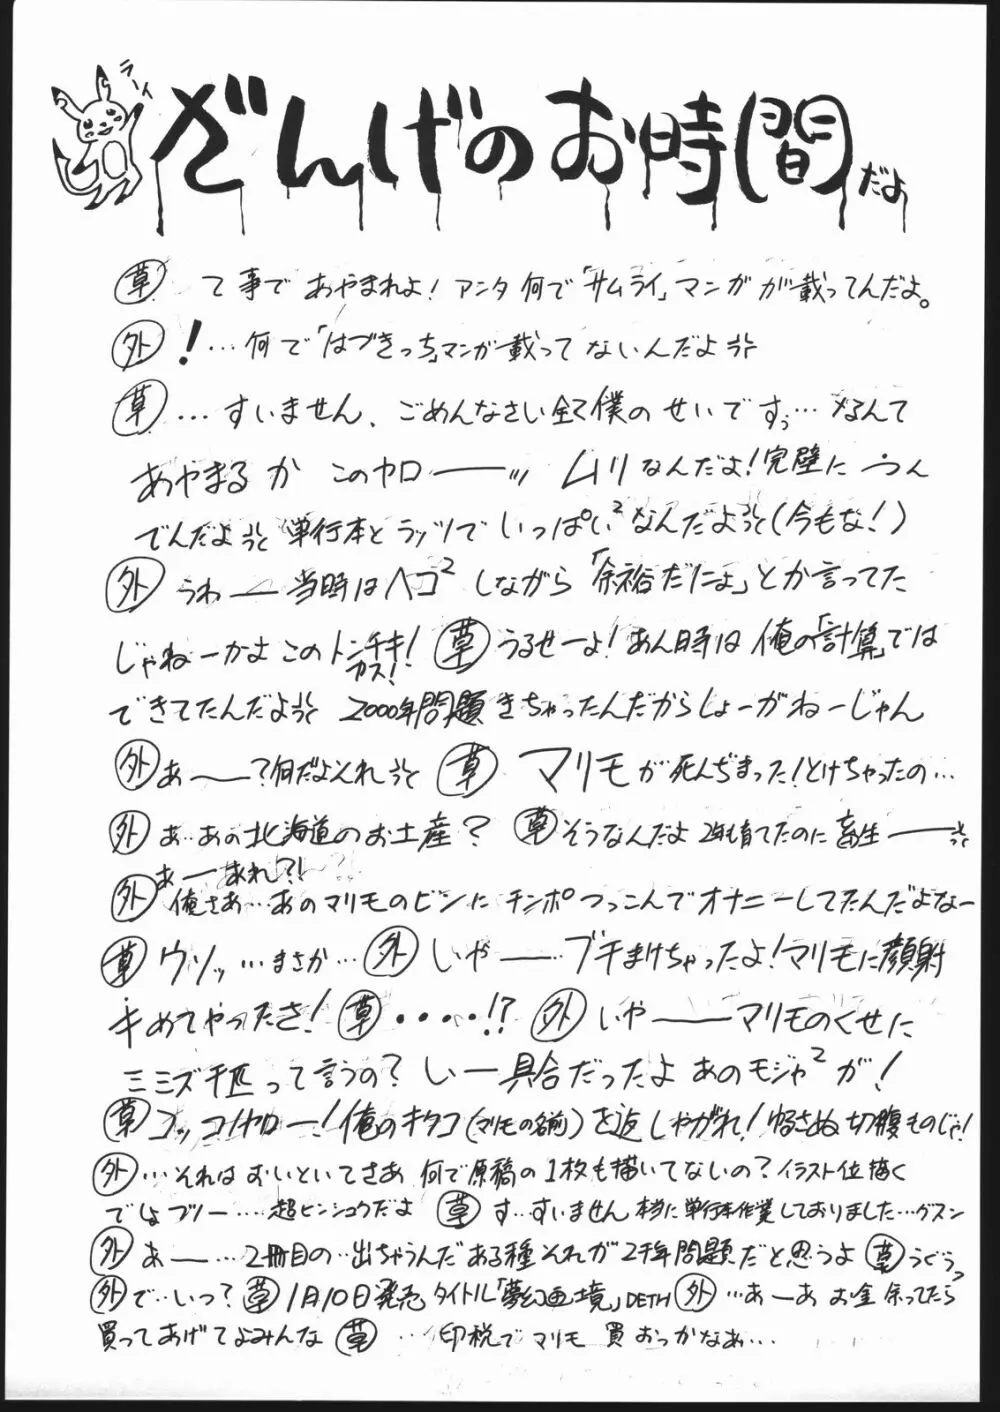 ラーイ
ざんげのお時間だよ
草 て事であやまれよ！アンタ何で「サムライ」マンガが載ってんだよ。
外 ！…何で「はづきっち」マンガ載ってないんだよ
草 …すいません、ごめんなさい全て僕のせいですぅ…なんて
あやまるか このヤローッ ムリなんだよ！完璧に うん
でんだよ 単行本とラッツでいっぱい²なんだよ(今もな！)
外 うわー当時はヘコ²しながら「余裕だにょ」とか言ってた
じゃねーかよこのトンチキカス！ 草 うるせーよ！あん時は俺の「計算」では
できてたんだよ 2000年問題きちゃったんだからしょーがねーじゃん
外 あー？何だよそれ 草 マリモが死んぢまった！とけちゃったの…
外 あ…あの北海道のお土産？ 草 そうなんだよ 2年も育てたのに畜生ー
あーあれ？！
外 俺さあ…あのマリモのビンにチンポつっこんでオナニーしてたんだよなー
草 ウソッ…まさか… 外 いやーブチまけちゃったよ！マリモに顔射
キめてやったさ！ 草 ・・・・!? 外 いやーマリモのくせに
ミミズ千匹って言うの？ いー具合だったよ あのモジャ²が！
草 コッコノヤロー！俺のキタコ(マリモの名前)を返しやがれ！ゆるさぬ 切腹ものじゃ！
外 …それはおいといてさあ 何で原稿の1枚も描いてないの？イラスト位描く
でしょフツー…超ヒンシュクだよ 草 す…すいません 本当に単行本作業しておりました…グスン
外 あー…2冊目の…出ちゃうんだ ある種それが2千年問題だと思うよ 草 うぐぅっ
外 で…いつ？ 草 1月10日発売 タイトル「夢幻画境」DETH 外 …あーあ お金余ってたら
買ってあげてよみんな 草 …印税でマリモ買おっかなあ…